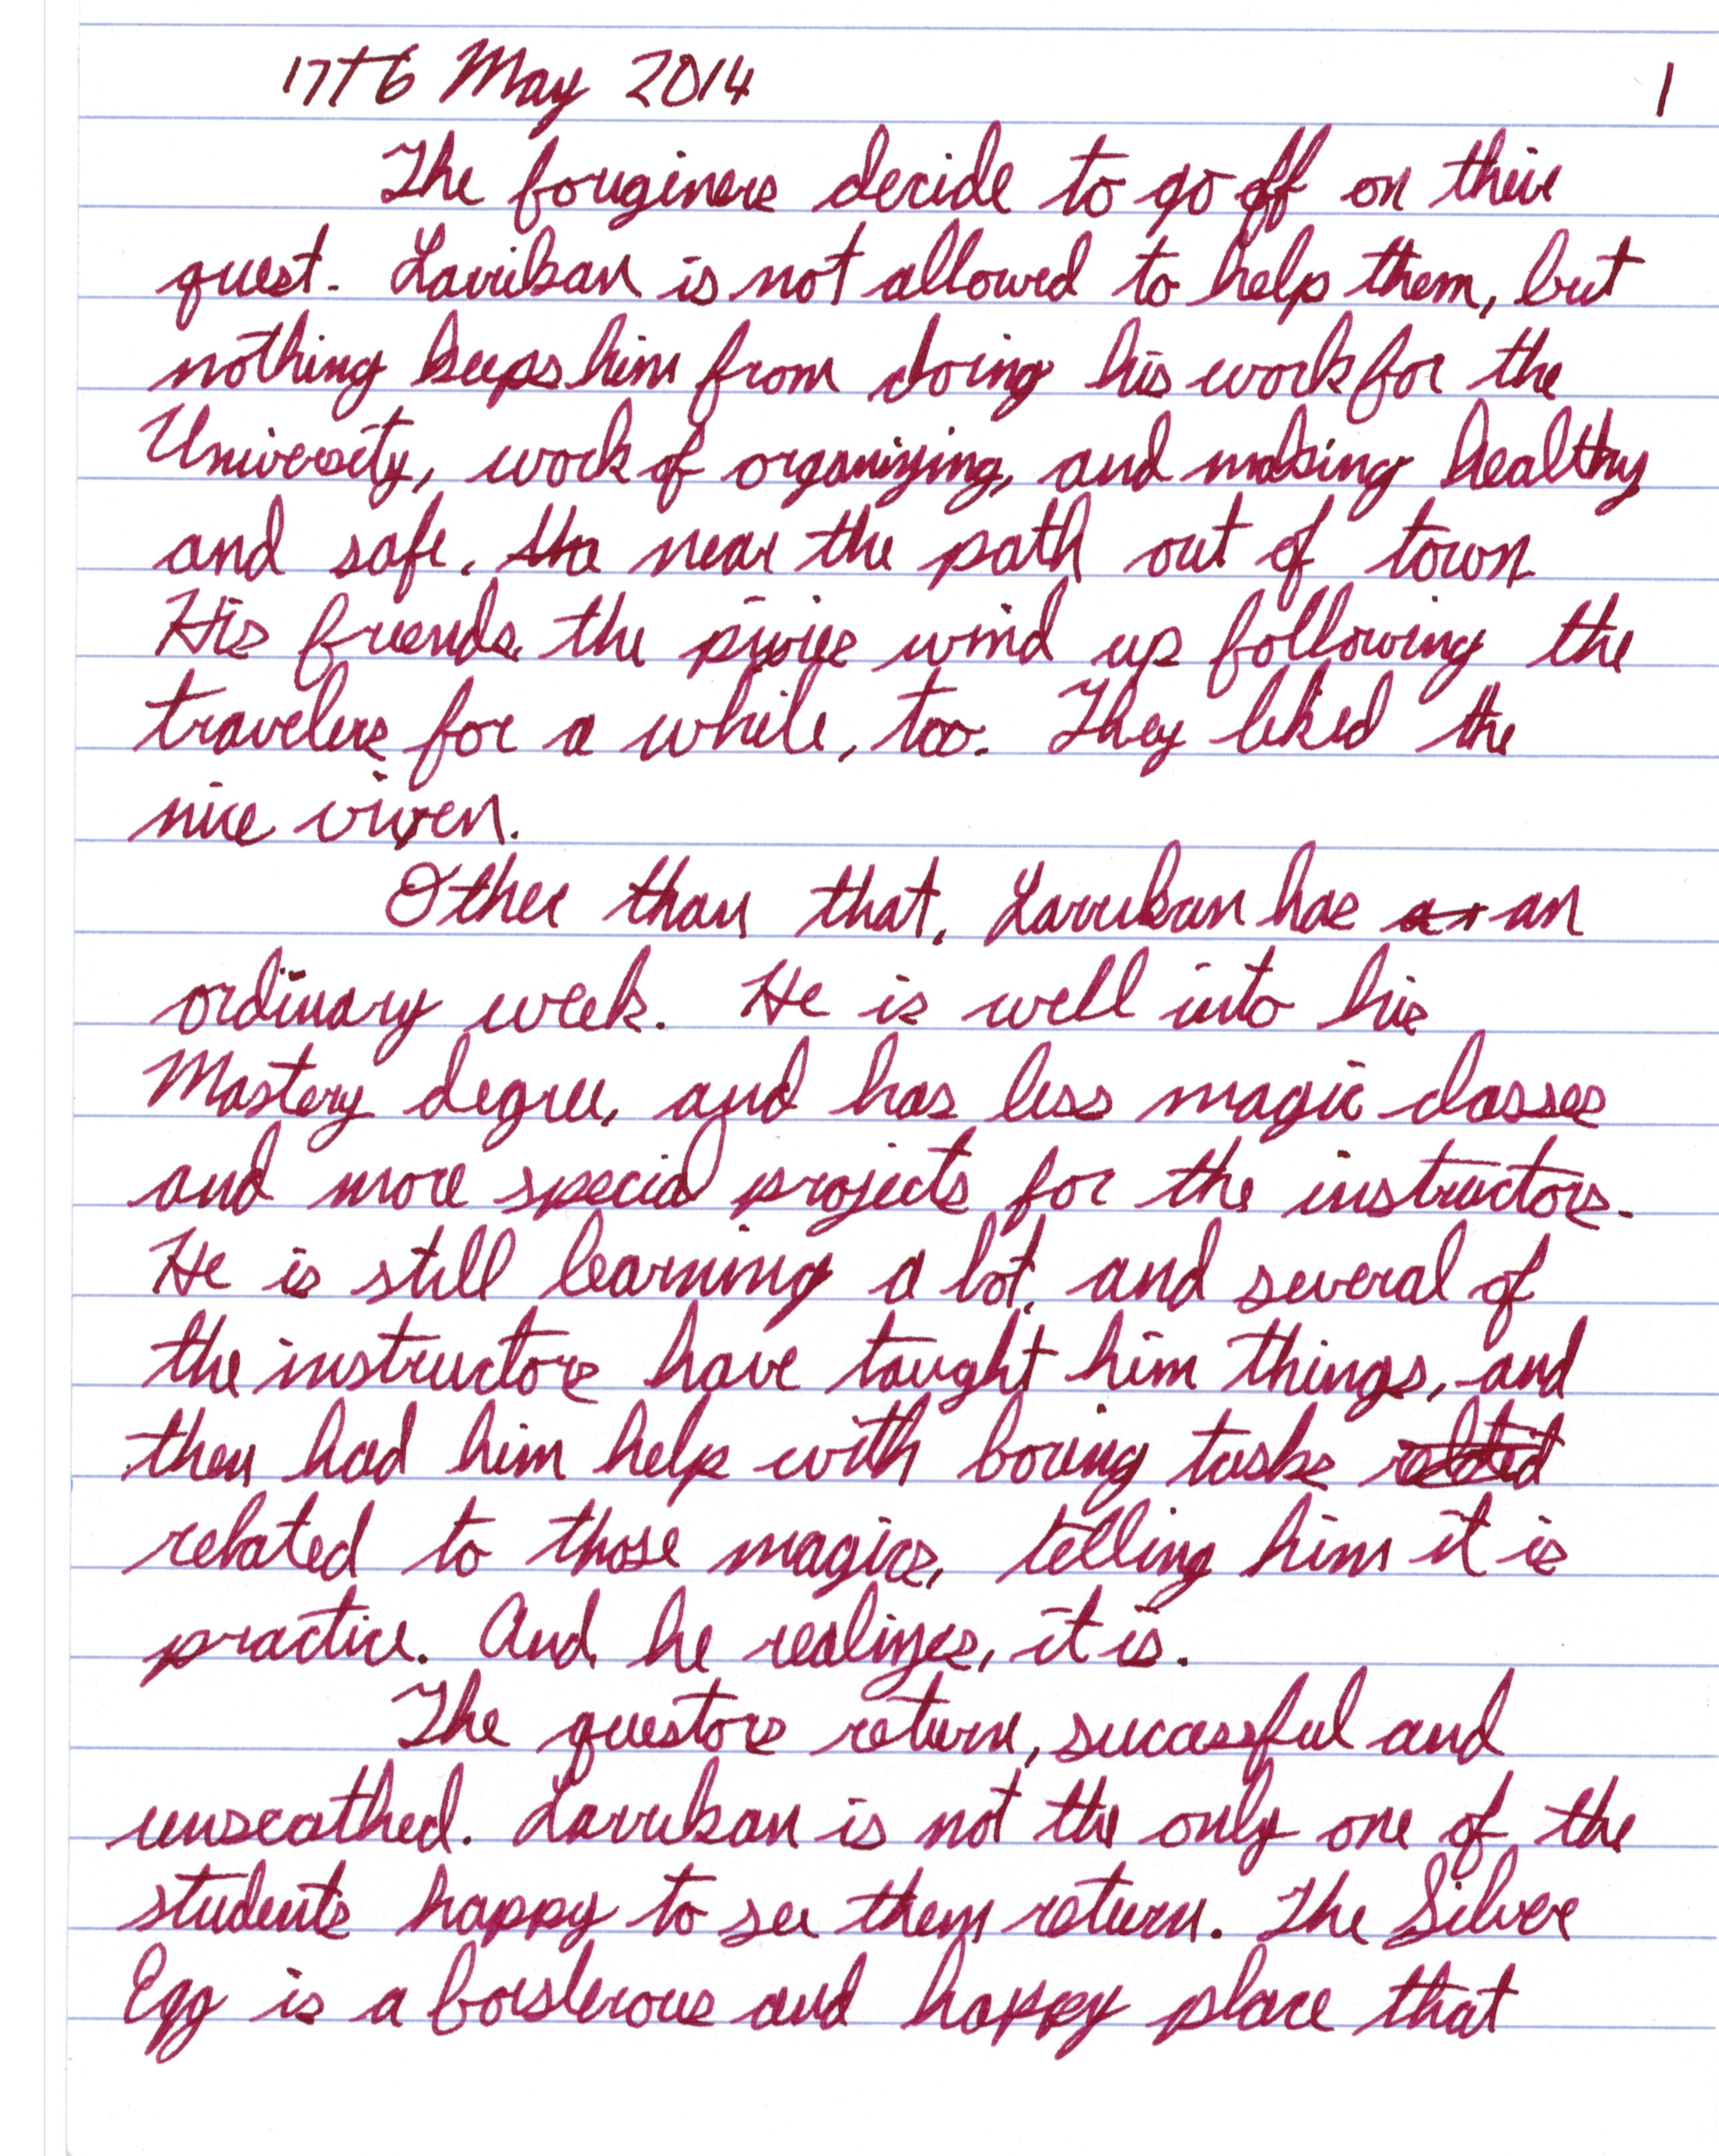 17th May 2014 1
The fouginers decide to go off on their
quest. Larrikan is not allowed to help them, but
nothing keeps him from doing his work for the
University, work of organizing, and making healthy
and safe, the near the path out of town
His friends, the pixies wind up following the
travelers for a while, too. They liked the
nice vixen.
Other than that, Larrikan has an
ordinary week. He is well into his
Mastery degree, and has less magic classes
and more special projects for the instructors.
He is still learning a lot, and several of
the instructors have taught him things, and
then had him help with boring tasks related
related to those magics, telling him it is
practice. And, he realizes, it is.
The questors return, sucessful and
unscathed. Larrikan is not the only one of the
students happy to see them return. The Silver
Egg is a boisterous and happy place that